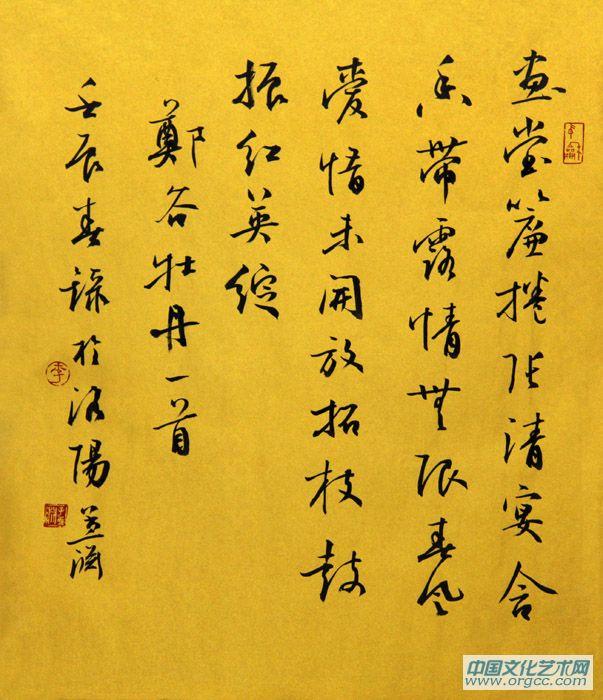 畫堂簾捲張清宴含
香帶露情無限春風
愛惜未開放拓枝鼓
振紅英綻
鄭谷牡丹一首
壬辰春録於洛陽
季
中国文化艺术网
www.orgcc.com